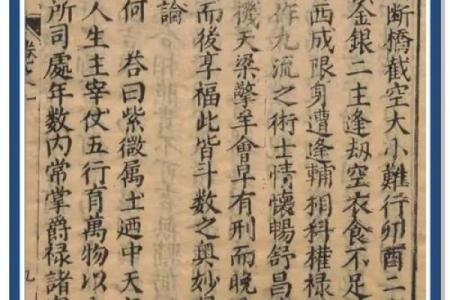 斷橋截空大小難行卯酉二
金銀二主逢刼空衣食不足
西成限身遭逢輔相科權禄
作九流之術士情懷暢舒昌
機天梁擎羊會早有刑而晚
而後享福此皆斗数之奥妙
論
何 荅曰紫微属土廼中天
人生主宰仗五行育萬物以
所司處年数内常掌爵禄諸
卷之一 九